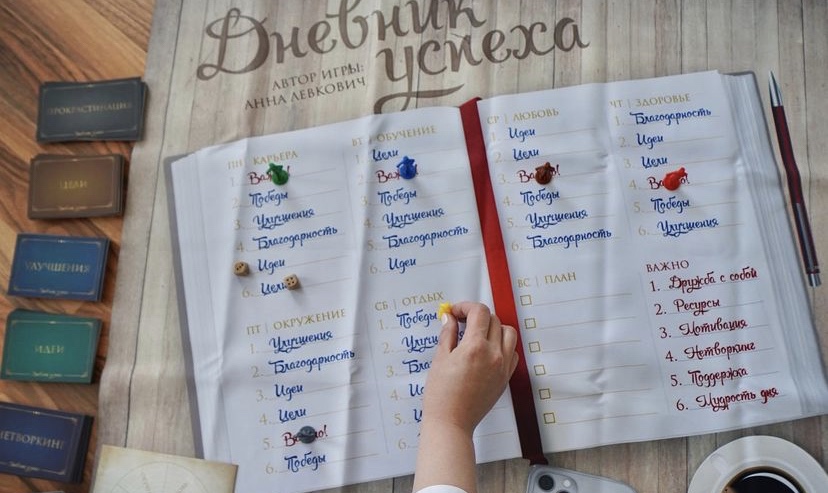 Дневник
успеха
АВТОР ИГРЫ:
АННА ЛЕВКОВИЧ
ПРОКРАСТИНАЦИЯ
ЦЕЛИ
УЛУЧШЕНИЯ
ИДЕИ
НЕТВОРКИНГ
ПН | КАРЬЕРА
1.
2. Победы
3. Улучшения
4. Благодарность
5. Идеи
6. Цели
ВТ | ОБУЧЕНИЕ
1. Цели
2.
3. Победы
4. Улучшения
5. Благодарность
6. Идеи
ПТ | ОКРУЖЕНИЕ
1. Улучшения
2. Благодарность
3. Идеи
4. Цели
5.
6. Победы
СБ | ОТДЫХ
1. Победы
2.
3.
4.
5.
6.
СР | ЛЮБОВЬ
1. Идеи
2. Цели
3.
4. Победы
5. Улучшения
6. Благодарность
ЧТ | ЗДОРОВЬЕ
1. Благодарность
2. Идеи
3. Цели
4.
5. Победы
6. Улучшения
ВС | ПЛАН
ВАЖНО
1. Дружба с собой
2. Ресурсы
3. Мотивация
4. Нетворкинг
5. Поддержка
6. Мудрость дня